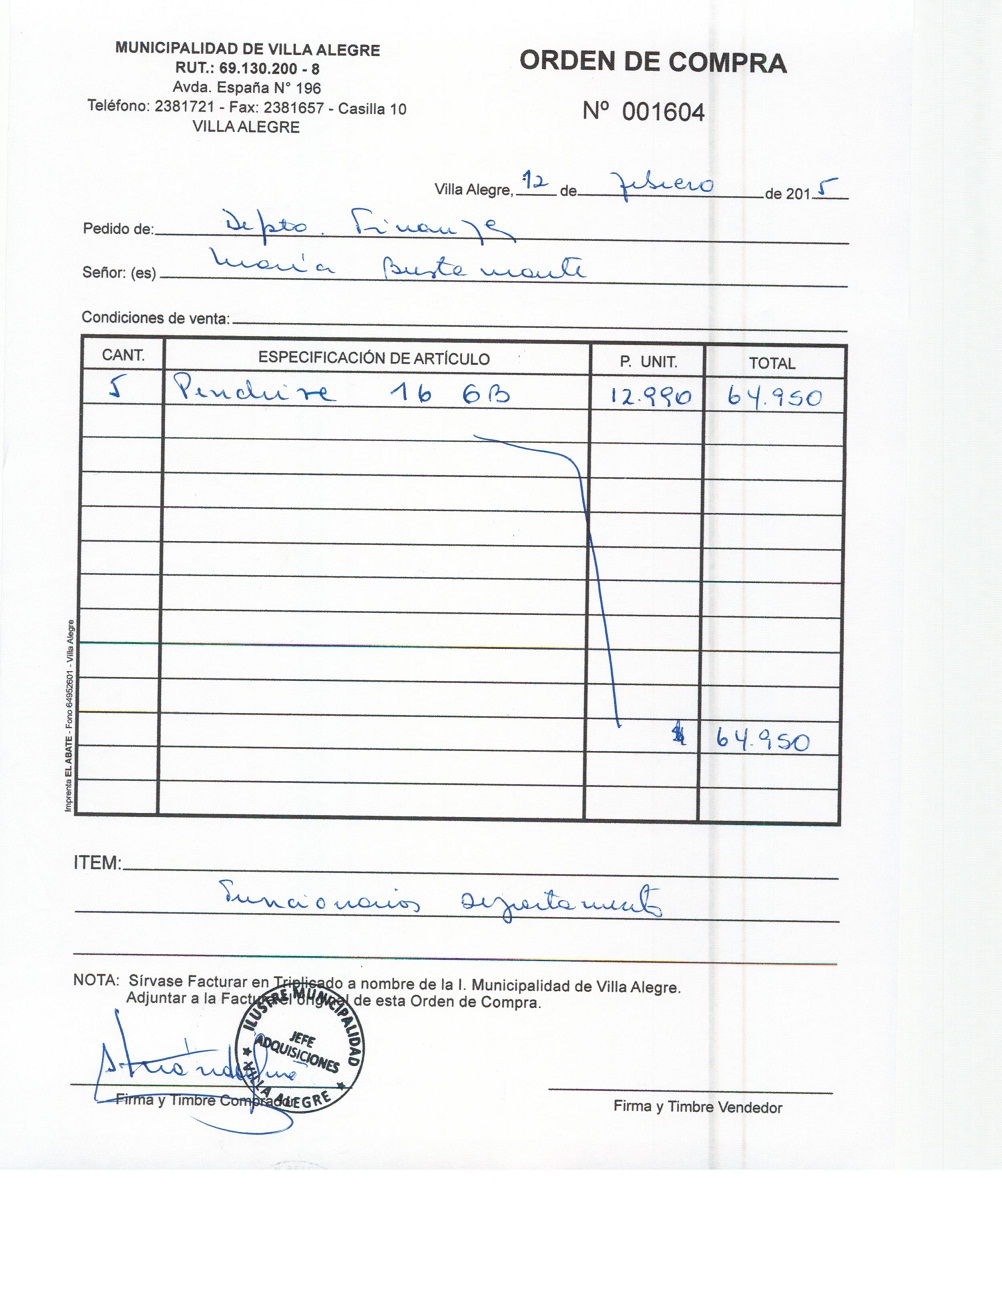 MUNICIPALIDAD DE VILLA ALEGRE
RUT.: 69.130.200 - 8
Avda. España N° 196
Teléfono: 2381721 - Fax: 2381657 - Casilla 10
VILLA ALEGRE
ORDEN DE COMPRA
Nº 001604
Villa Alegre, 12 de febrero de 2015
Pedido de: Depto. Finanzas
Señor: (es) María Bustamante
Condiciones de venta:
CANT. ESPECIFICACIÓN DE ARTÍCULO P. UNIT. TOTAL
5 Pendrive 16 GB 12.990 64.950
$ 64.950
Imprenta EL ABATE - Fono 64952601 - Villa Alegre
ITEM:
Funcionarios departamento
NOTA: Sírvase Facturar en Triplicado a nombre de la I. Municipalidad de Villa Alegre.
Adjuntar a la Factura el original de esta Orden de Compra.
ILUSTRE MUNICIPALIDAD
JEFE
ADQUISICIONES
★ VILLA ALEGRE ★
Firma y Timbre Comprador
Firma y Timbre Vendedor